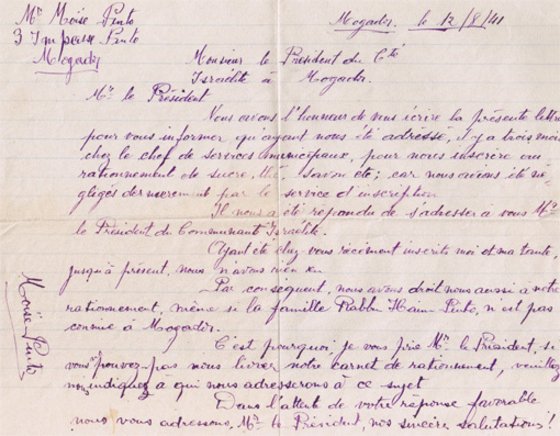 Mr Moïse Pinto
3 Impasse Pinto
Mogador
Mogador. le 12/8/41
Monsieur le
Président du Cté
Israélite à
Mogador.
Mr le Président
Nous avons l'honneur de vous écrire la présente lettre
pour vous informer qu'ayant nous été adressé, il y a trois mois
chez le chef de services municipaux, pour nous inscrire au
rationnement de sucre, thé, savon etc; car nous avions été né-
gligés dernièrement par le service d'inscription.
Il nous a été répondu de s'adresser à vous Mr
le Président du Communauté Israélite.
Ayant été chez vous récément inscrits moi et ma tante,
jusqu'à présent, nous n'avons rien eu.
Par conséquent, nous avons droit nous aussi à notre
rationnement, même si la famille Rabbi Haim Pinto, n'est pas
connue à Mogador.
C'est pourquoi, je vous prie Mr le Président, si
vous pouvez pas nous livrer notre carnet de rationnement, veuillez
nous indiquez à qui nous adresserons à ce sujet
Dans l'attente de votre réponse favorable
nous vous adressons, Mr le Président, nos sincère salutations!
Moïse Pinto